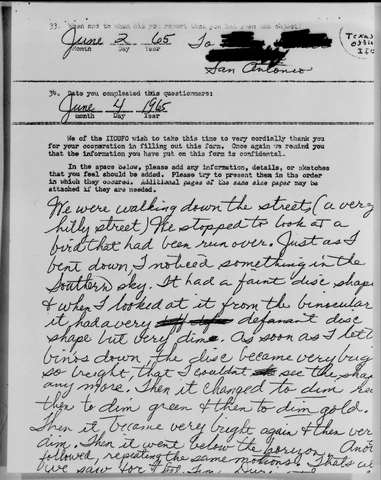 33. When and to whom did you report that you had seen the object?
June 2 65 To
Month Day Year
San Antonio
Texas
Office
34. Date you completed this questionnaire:
June 4 1965
month Day Year
We of the IIOUFO wish to take this time to very cordially thank you
for your cooperation in filling out this form. Once again we remind you
that the information you have put on this form is confidental.
In the space below, please add any information, details, or sketches
that you feel should be added. Please try to present them in the order
in which they occured. Additional pages of the same size paper may be
attached if they are needed.
We were walking down the streets (a very
hilly street) We stopped to look at a
bird that had been run over. Just as I
bent down, I noticed something in the
Southern sky. It had a faint disc shape
& when I looked at it from the binocular
it had a very defanant disc
shape but very dim. As soon as I let
binos down the disc became very brig
so bright that I couldnt see the shap
any more. Then it changed to dim red
then to dim green & then to dim gold.
Then it became very bright again & then ver
dim. Then it went below the horizon. Anot
followed, repeating the same motions. Thats w
we saw for